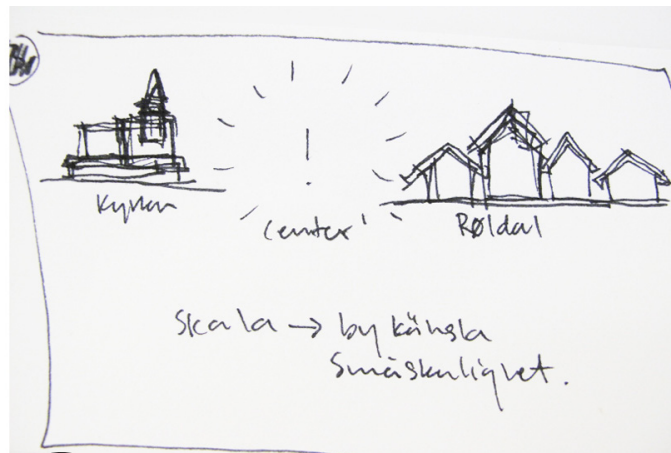 center
Røldal
skala → by känsla
småskalighet.